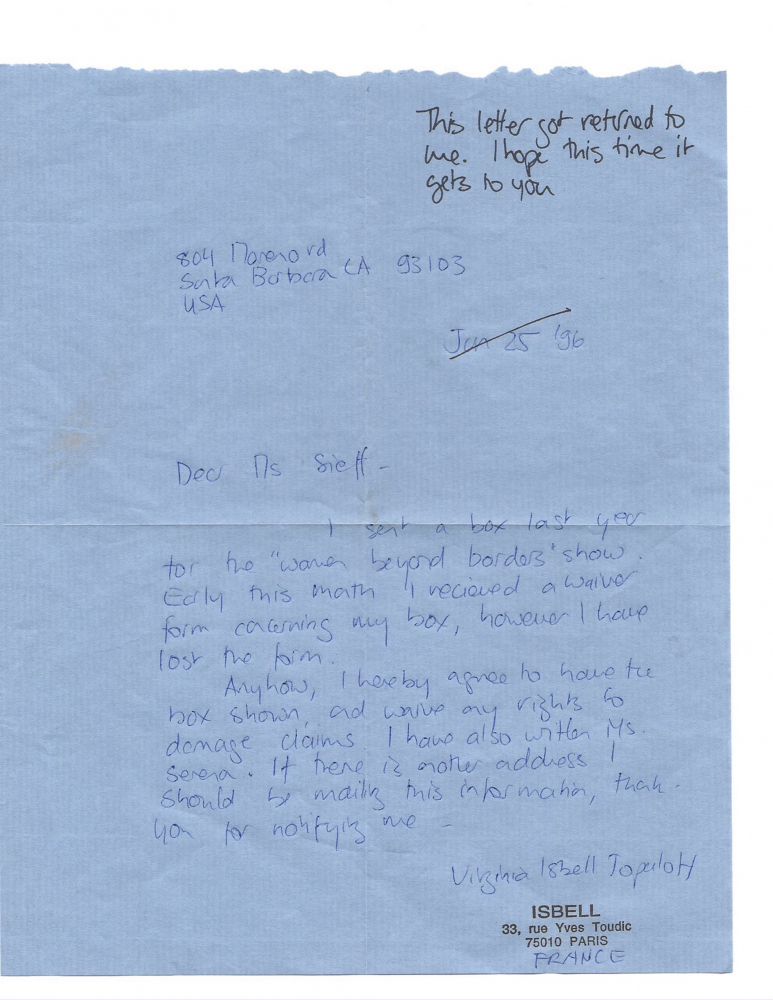 This letter got returned to
me. I hope this time it
gets to you
804 Moreno rd
Santa Barbara CA 93103
USA
Jun 25 '96
Dear Ms Sieff -
I sent a box last year
for the "women beyond borders" show.
Early this month I recieved a waiver
form concerning my box, however I have
lost the form.
Anyhow, I hereby agree to have the
box shown, and waive any rights to
damage claims I have also written Ms.
Serena. If there is another address I
should be mailing this information, thank
you for notifying me -
Virginia Isbell
ISBELL
33, rue Yves Toudic
75010 PARIS
FRANCE